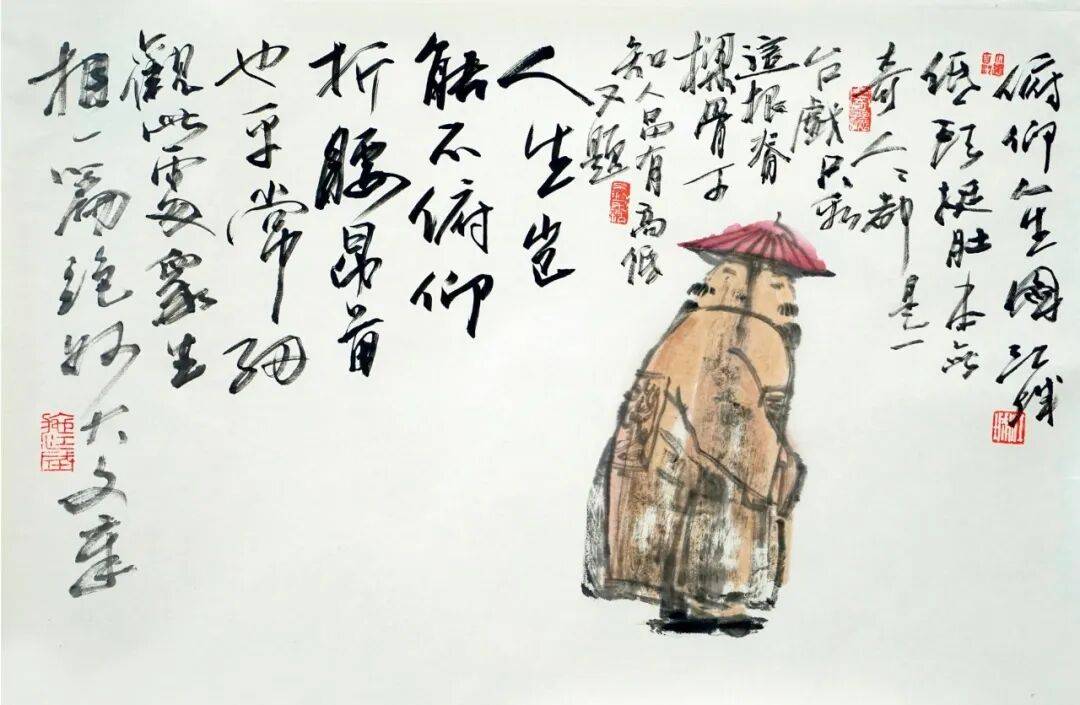 俯仰人生圖 江城
低頭挺肚本無
奇人人都是一
台戲只看
這根脊
樑骨才
知人品有高低
又題
人生岂
能不俯仰
折腰昂首
也平常细
觀此處眾生
相一篇絶妙大文章